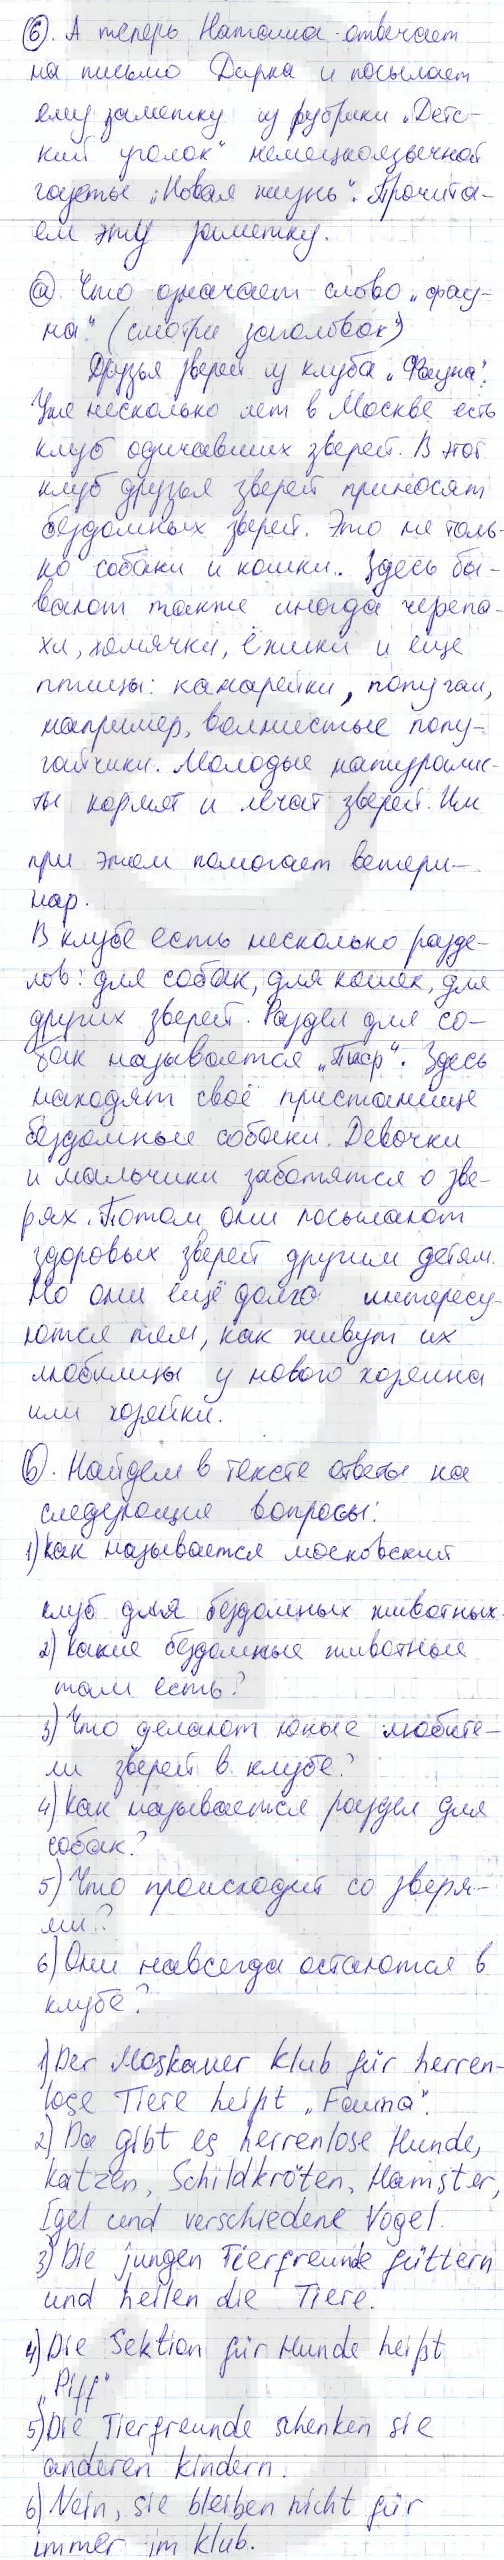 6. А теперь Наташа отвечает
на письмо Дирка и посылает
ему заметку из рубрики „Детс-
кий уголок" немецкоязычной
газеты „Новая жизнь". Прочита-
ем эту заметку.
a. Что означает слово „фау-
на"? (смотри заголовок)
Друзья зверей из клуба „Фауна".
Уже несколько лет в Москве есть
клуб одичавших зверей. В этот
клуб друзья зверей приносят
бездомных зверей. Это не толь-
ко собаки и кошки. Здесь бы-
вают также иногда черепа-
хи, хомячки, ёжики и еще
птицы: канарейки, попугаи,
например, волнистые попу-
гайчики. Молодые натуралис-
ты кормят и лечат зверей. Им
при этом помогает ветери-
нар.
В клубе есть несколько разде-
лов: для собак, для кошек, для
других зверей. Раздел для со-
бак называется „Пиф". Здесь
находят своё пристанище
бездомные собаки. Девочки
и мальчики заботятся о зве-
рях. Потом они посылают
здоровых зверей другим детям.
Но они ещё долго интересу-
ются тем, как живут их
любимцы у нового хозяина
или хозяйки.
b. Найдем в тексте ответы на
следующие вопросы:
1) Как называется московский
клуб для бездомных животных.
2) Какие бездомные животные
там есть?
3) Что делают юные любите-
ли зверей в клубе?
4) Как называется раздел для
собак?
5) Что происходит со зверя-
ми?
6) Они навсегда остаются в
клубе?
1) Der Moskauer Klub für herren-
lose Tiere heißt „Fauna".
2) Da gibt es herrenlose Hunde,
Katzen, Schildkröten, Hamster,
Igel und verschiedene Vogel.
3) Die jungen Tierfreunde füttern
und heilen die Tiere.
4) Die Sektion für Hunde heißt
„Piff"
5) Die Tierfreunde schenken sie
anderen Kindern.
6) Nein, sie bleiben nicht für
immer im Klub.